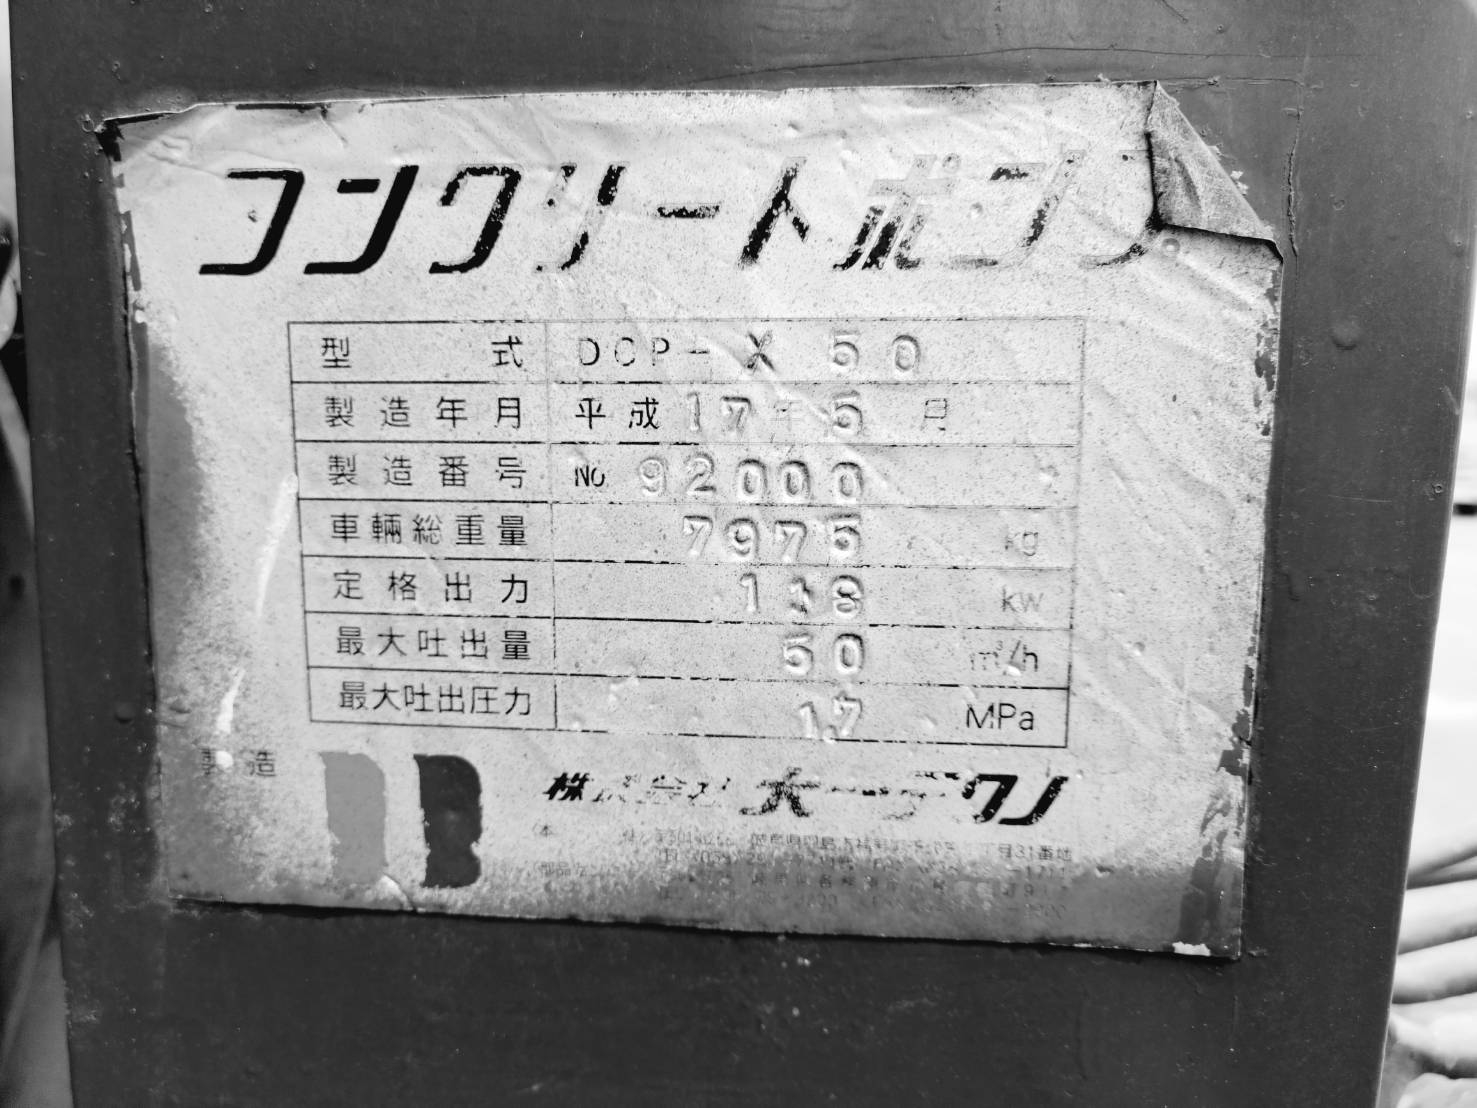 コンクリートポンプ
型式 DCP-X50
製造年月 平成17年5月
製造番号 No 92000
車輛総重量 7975 kg
定格出力 118 kw
最大吐出量 50 m³/h
最大吐出圧力 1.7 MPa
製造 株式会社 大一テクノ
目31番地